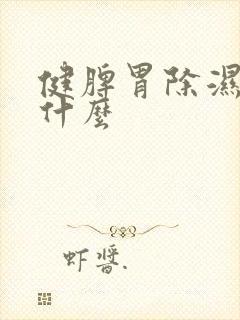 健脾胃除濕
什麼
虾醬.